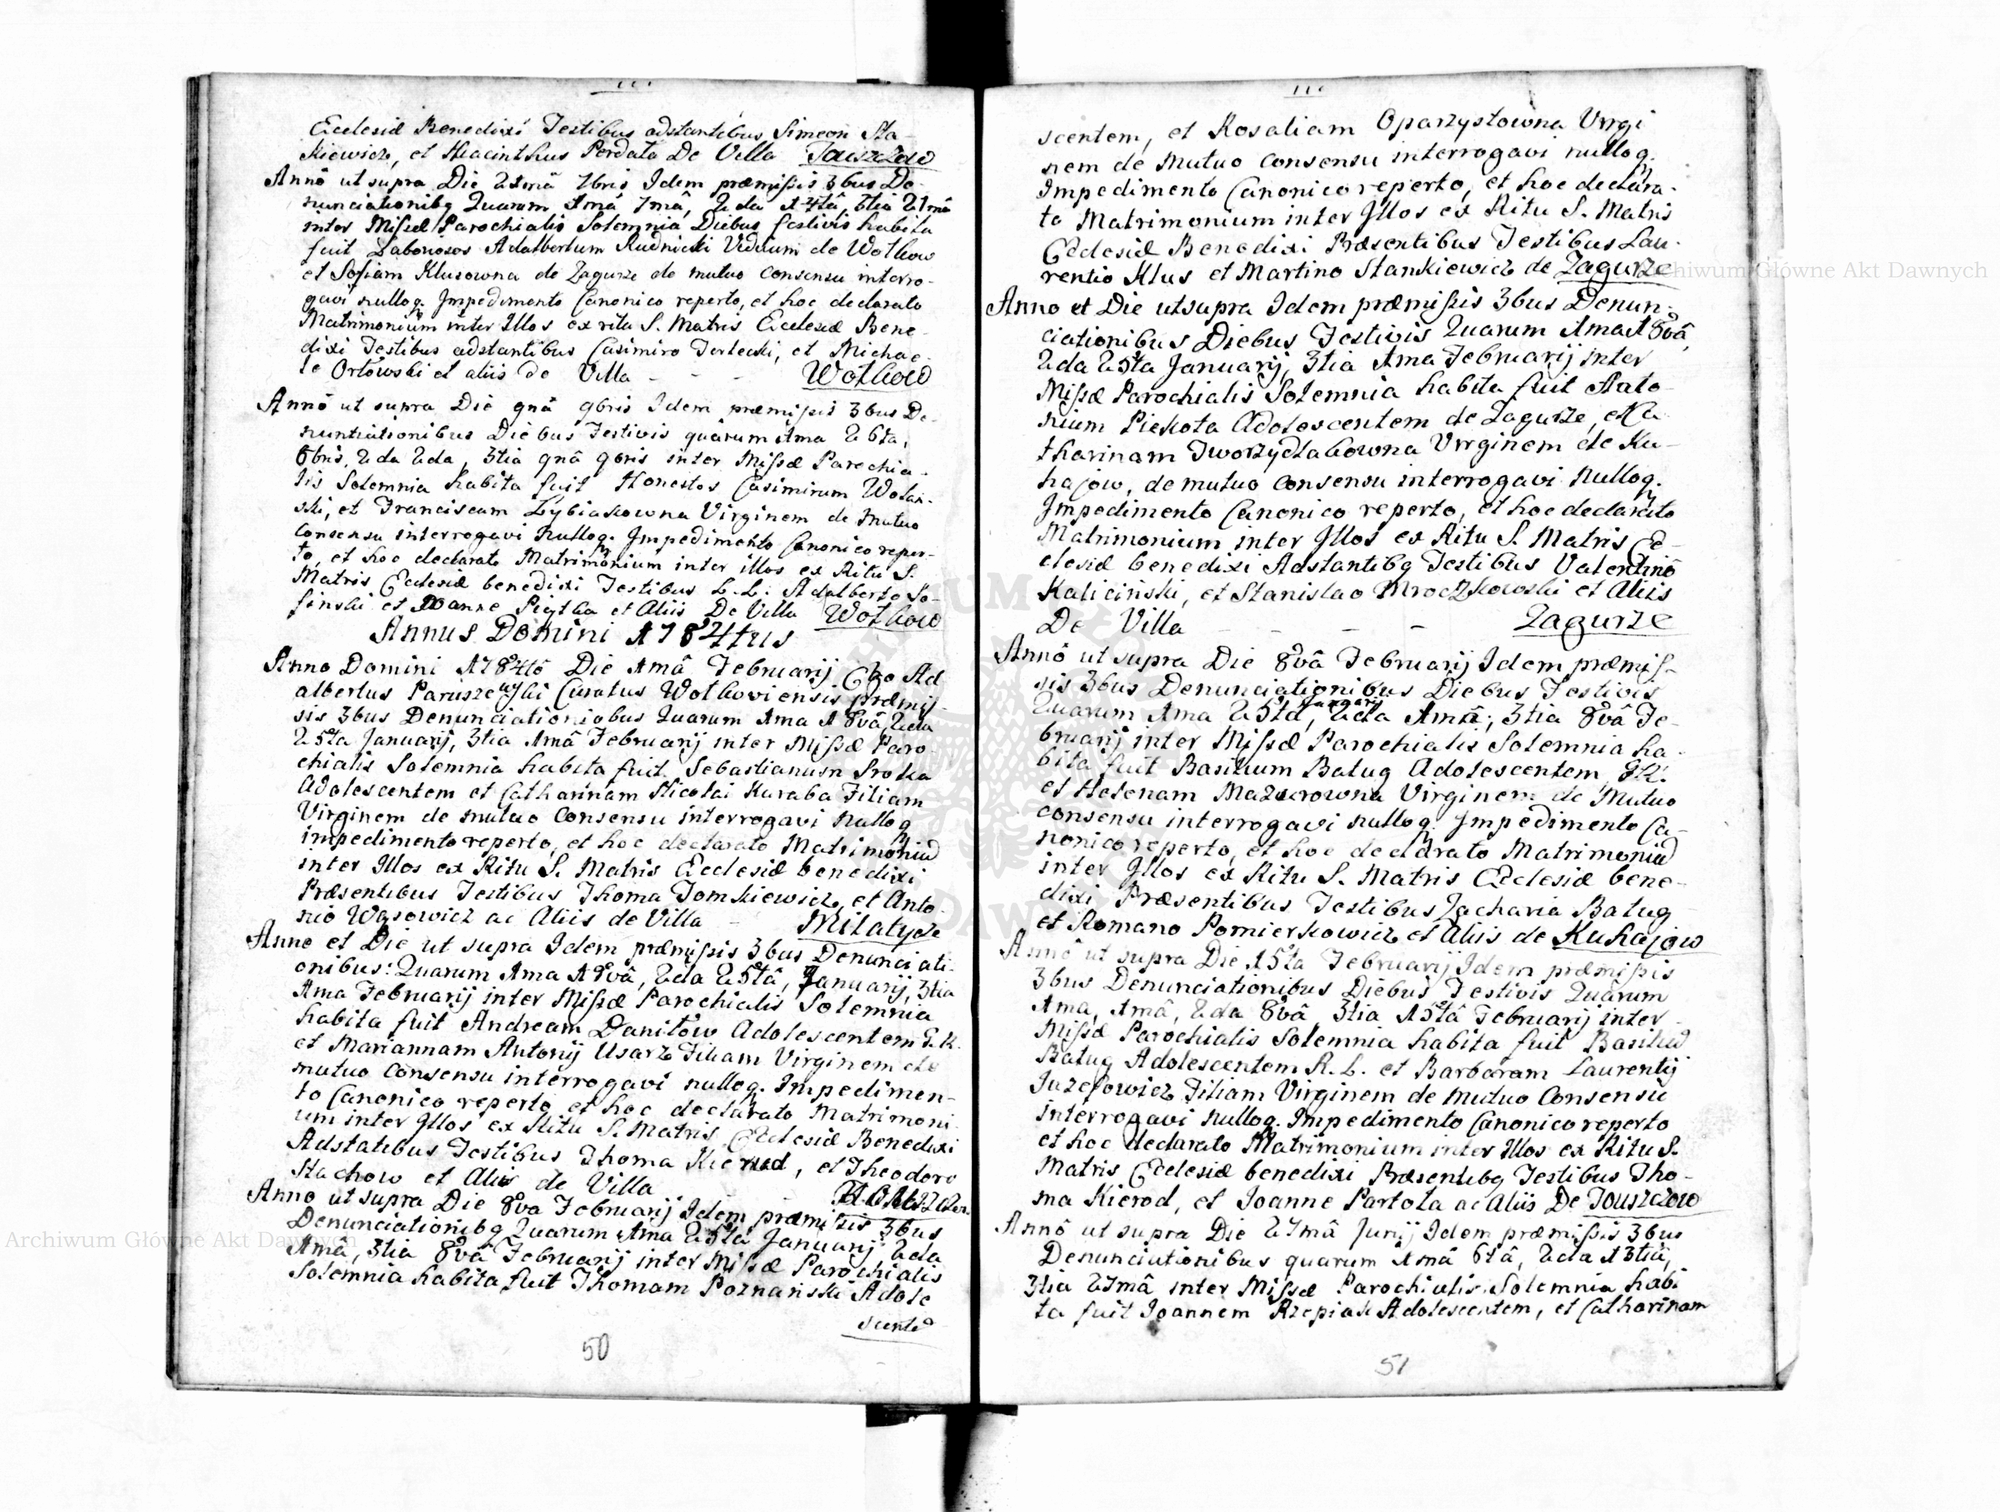 Ecclesiæ Benedixi Testibus adstantibus Simeon Sta-
kiewicz, et Hiacinthus Perdała De Villa Touszczow
Annô ut supra Die 21mâ 7bris Idem præmißis 3bus De-
nunciationibq Quarum 1mâ 7mâ, 2da 14tâ, 3tia 21mâ
inter Mißæ Parochialis Solemnia Diebus festivis habita
fuit Laboriosos Adalbertum Rudnicki Viduum de Wołkow
et Sofiam Klusowna de Zagurze de mutuo consensu interro-
gavi nulloq. Impedimento Canonico reperto, et hoc declarato
Matrimonium inter Illos ex ritu S. Matris Ecclesiæ Bene-
dixi Testibus adstantibus Casimiro Terlecki, et Michae-
le Orłowski et aliis de Villa - - - Wołkow
Annô ut supra Die 9nâ 9bris Idem præmißis 3bus De-
nuntiationibus Diebus Festivis quarum 1ma 26ta,
8bris, 2da 2da, 3tia 9nâ 9bris inter Mißæ Parochia-
lis Solemnia habita fuit Honestos Casimirum Wolan-
ski, et Franciscam Zybiakowna Virginem de mutuo
consensu interrogavi nulloq. Impedimento Canonico reper-
to, et hoc declarato Matrimonium inter illos ex Ritu S.
Matris Ecclesiæ benedixi Testibus L.L: Adalberto So-
sinski et Joanne Piątka et Aliis De Villa Wołkow
Annus Domini 1784tus
Anno Domini 1784to Die 1mâ Februarij Ego Ad-
albertus Paruszewski Curatus Wołkoviensis præmis-
sis 3bus Denunciationiobus Quarum 1ma 18vâ 2da
25ta Januarij, 3tia 1mâ Februarij inter Mißæ Paro-
chialis Solemnia habita fuit Sebastianum Sroka
Adolescentem et Catharinam Nicolai Kuraba Filiam
Virginem de mutuo Consensu interrogavi nulloq
impedimento reperto, et hoc declarato Matrimoniũ
inter Illos ex Ritu S. Matris Ecclesiæ benedixi
Præsentibus Testibus Thoma Tomkiewicz, et Anto-
nio Wąsowicz ac Aliis de Villa - Miłatycze
Anno et Die ut supra Idem præmißis 3bus Denunciati-
onibus: Quarum 1ma 18vâ, 2da 25tâ, Januarij, 3tia
1ma Februarij inter Mißæ Parochialis Solemnia
habita fuit Andream Daniłow Adolescentem G.R.
et Mariannam Antonij Usarz Filiam Virginem de
mutuo Consensu interrogavi nulloq. Impedimen-
to Canonico reperto et hoc declarato Matrimoni-
um inter Illos ex Ritu S. Matris Ecclesiæ Benedixi
Adstatibus Testibus Thoma Kierod, et Theodoro
Stachow et Aliis de Villa
Anno ut supra Die 8va Februarij Idem præmißis 3bus
Denunciationibq Quarum 1ma 25ta Januarij 2da
1mâ, 3tia 8vâ Februarij inter Mißæ Parochialis
Solemnia habita fuit Thomam Poznański Adole
scentẽ
50
scentem, et Rosaliam Oparzystowna Virgi
nem de mutuo consensu interrogavi nulloq.
Impedimento Canonico reperto, et hoc declara-
to Matrimonium inter Illos ex Ritu S. Matris
Ecclesiæ Benedixi Præsentibus Testibus Lau-
rentio Klus et Martino Stankiewicz de Zagurze
Anno et Die ut supra Idem præmißis 3bus Denun-
ciationibus Diebus Festivis Quarum 1ma 18vâ,
2da 25ta Januarij, 3tia 1ma Februarij inter
Mißæ Parochialis Solemnia habita fuit Anto-
nium Piekota Adolescentem de Zagurze, et Ka-
tharinam Tworzydłakowna Virginem de Ku-
hajow, de mutuo consensu interrogavi Nulloq.
Impedimento Canonico reperto, et hoc declarato
Matrimonium inter Illos ex Ritu S. Matris Ec-
clesiæ benedixi Adstantibq Testibus Valentino
Kaliciński, et Stanislao Mroczkowski et Aliis
De Villa - - - - Zagurze
Annô ut supra Die 8vâ Februarij Idem præmis-
sis 3bus Denunciationibus Diebus Festivis
Januarij
Quarum 1ma 25ta, 2da 1mâ, 3tia 8vâ Fe-
bruarij inter Mißæ Parochialis Solemnia ha-
bita fuit Basilium Baług Adolescentem, G.R.
et Helenam Mazurowna Virginem de Mutuo
consensu interrogavi nulloq. Impedimento Ca-
nonico reperto, et hoc declarato Matrimoniũ
inter Illos ex Ritu S. Matris Ecclesiæ bene-
dixi Præsentibus Testibus Zacharia Baług
et Romano Pomierkowicz et Aliis de Kuhajow
Annô ut supra Die 15ta Februarij Idem præmißis
3bus Denunciationibus Diebus Festivis Quarum
1ma, 1mâ, 2da 8vâ, 3tia 15tâ Februarij inter
Mißæ Parochialis Solemnia habita fuit Basiliũ
Baług Adolescentem R.L. et Barbaram Laurentij
Juzefowicz Filiam Virginem de Mutuo Consensu
interrogavi nulloq. Impedimento Canonico reperto
et hoc declarato Matrimonium inter Illos ex Ritu S.
Matris Ecclesiæ benedixi Præsentibq Testibus Tho-
ma Kierod, et Joanne Partoła ac Aliis De Touszczow
Annô ut supra Die 27mâ Junij Idem præmißis 3bus
Denunciationibus quarum 1mâ 6tâ, 2da 13tiâ,
3tia 27mâ inter Mißæ Parochialis Solemnia habi
ta fuit Joannem Rzepiak Adolescentem, et Catharinam
51
Archiwum Główne Akt Dawnych
Archiwum Główne Akt Dawnych